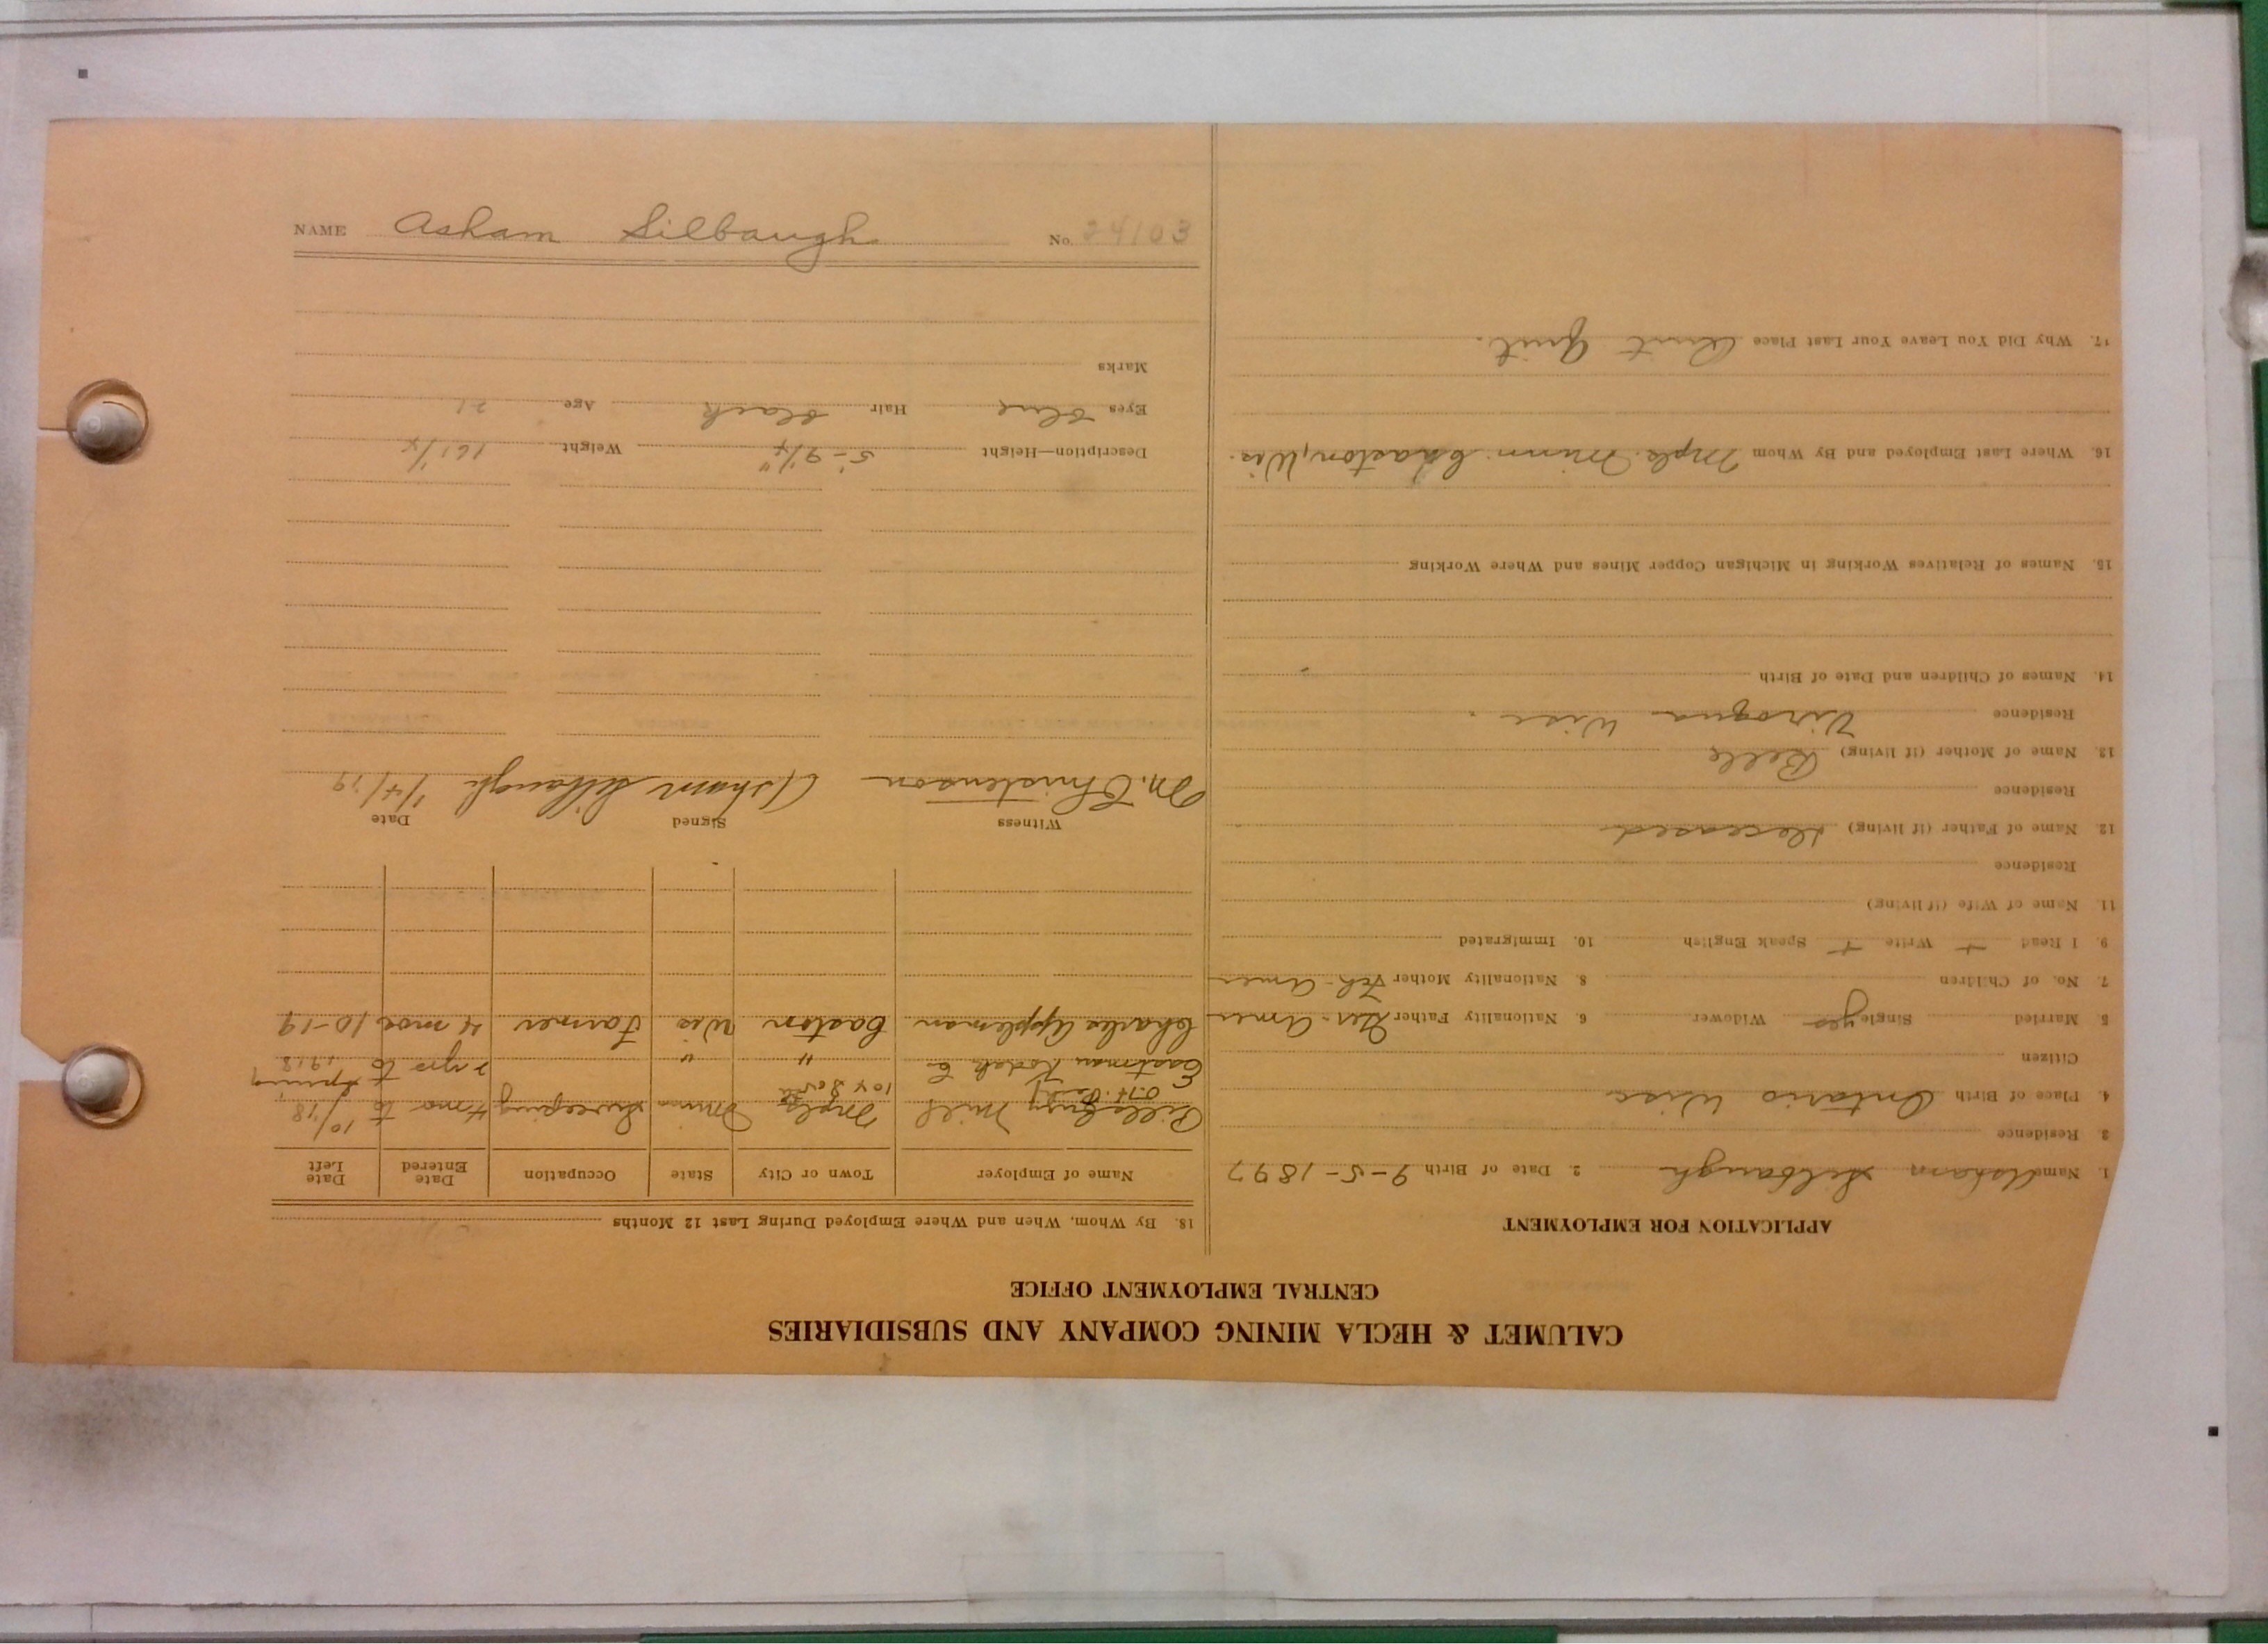 CALUMET & HECLA MINING COMPANY AND SUBSIDIARIES
CENTRAL EMPLOYMENT OFFICE
APPLICATION FOR EMPLOYMENT
1. Name Asham Silbaugh 2. Date of Birth 9-5-1897
3. Residence
4. Place of Birth Ontario Wisc
Citizen
5. Married Single yes Widower 6. Nationality Father Ger-Amer
7. No. of Children 8. Nationality Mother Amer
9. I Read + Write + Speak English 10. Immigrated
11. Name of Wife (if living)
Residence
12. Name of Father (if living) deceased
Residence
13. Name of Mother (if living) Belle
Residence Viroqua Wisc.
14. Names of Children and Date of Birth -
15. Names of Relatives Working in Michigan Copper Mines and Where Working
16. Where Last Employed and By Whom Mpls. Minn. Wis.
17. Why Did You Leave Your Last Place Quit.
18. By Whom, When and Where Employed During Last 12 Months
Name of Employer Town or City State Occupation Date Entered Date Left
Pillsbury Mill Mpls Minn Sweeping 4 mo to 10/'18
Eastman Kodak Co " " 2 yrs to Spring 1918
Charles Appleman Easton Wis Farmer 4 mos 10-19
Witness Signed Date
M. Christenson Asham Silbaugh 1/4/19
Description—Height 5'-9 1/4" Weight 161 1/4
Eyes blue Hair black Age 21
Marks
NAME Asham Silbaugh No. 24103